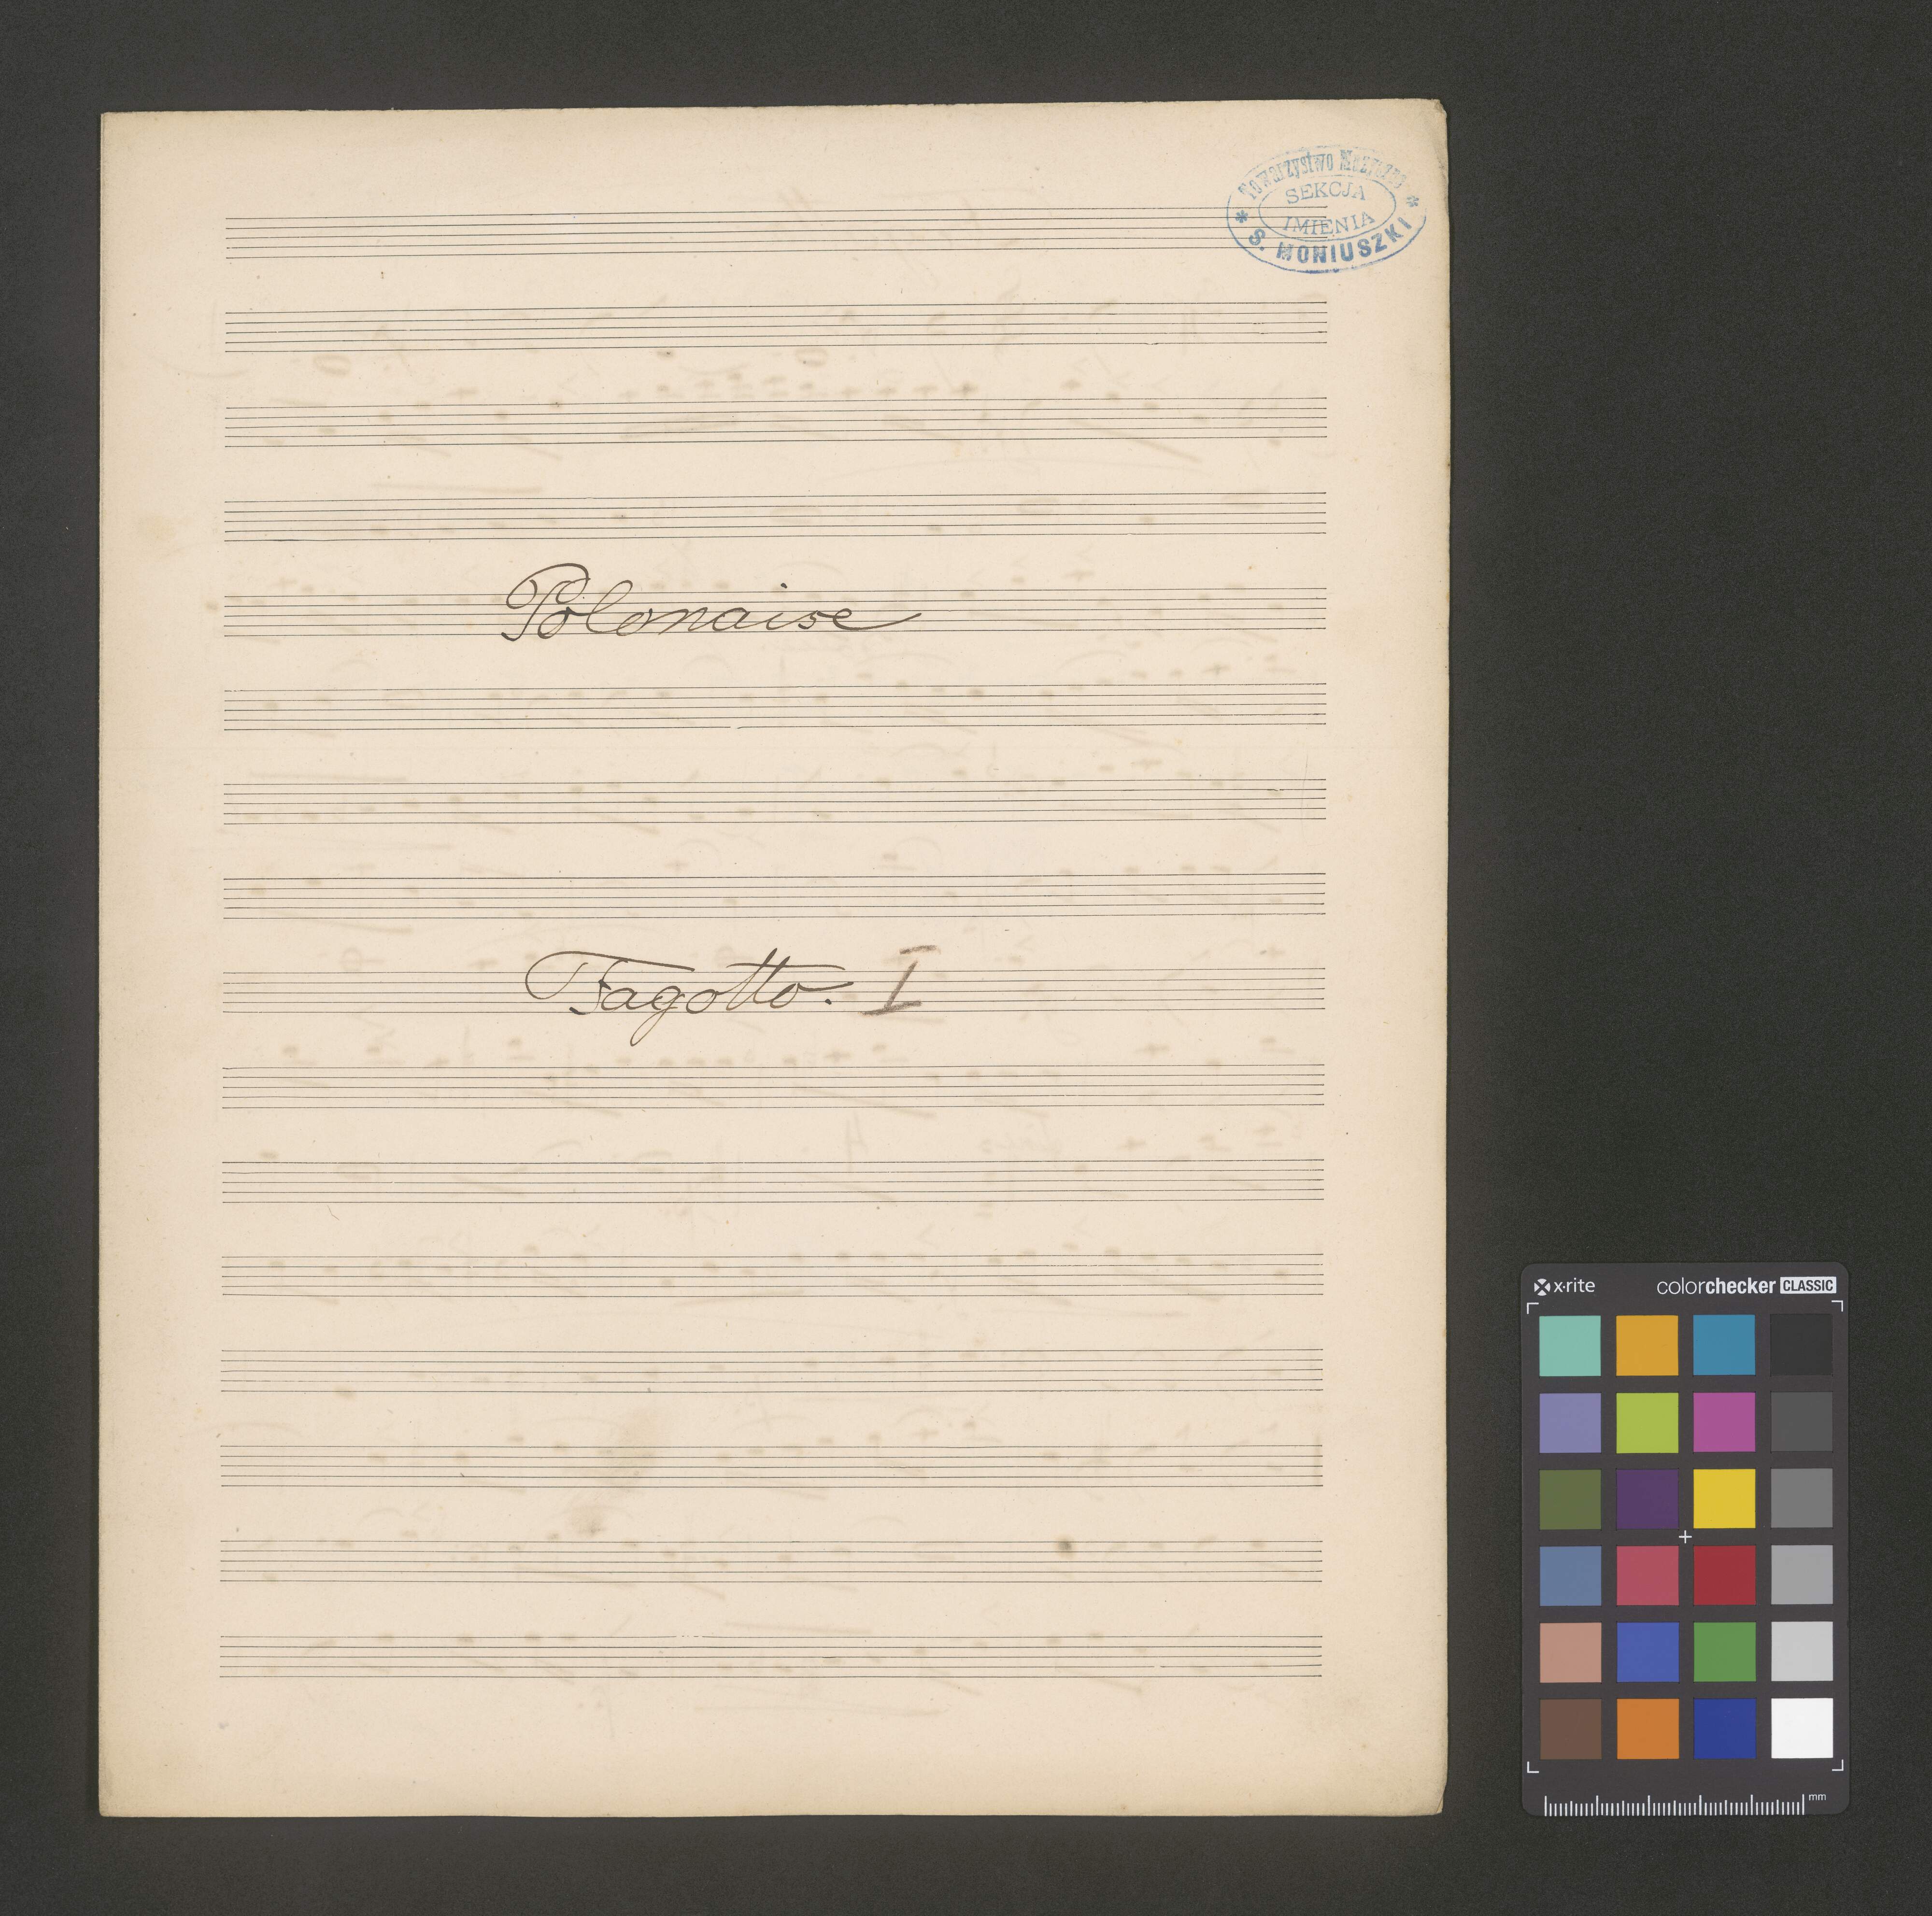 Towarzystwo Muzyczne
SEKCJA
IMIENIA
* S. MONIUSZKI *
Polonaise
Fagotto. I
x·rite colorchecker CLASSIC
mm